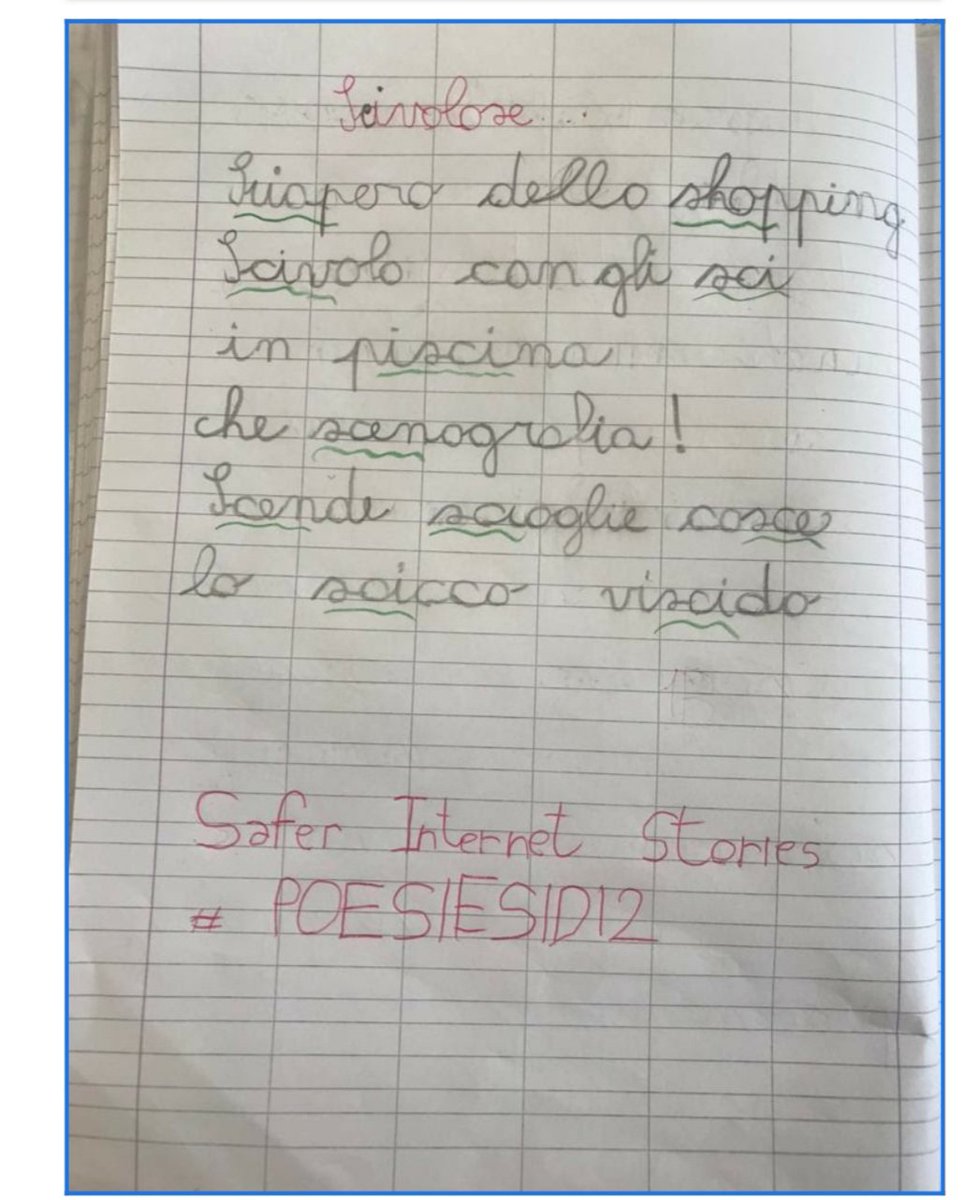 Scivolose...
Sciopero dello shopping
Scivolo con gli sci
in piscina
che scenografia!
Scende scioglie cosce
lo scicco viscido
Safer Internet Stories
# POESIESID12